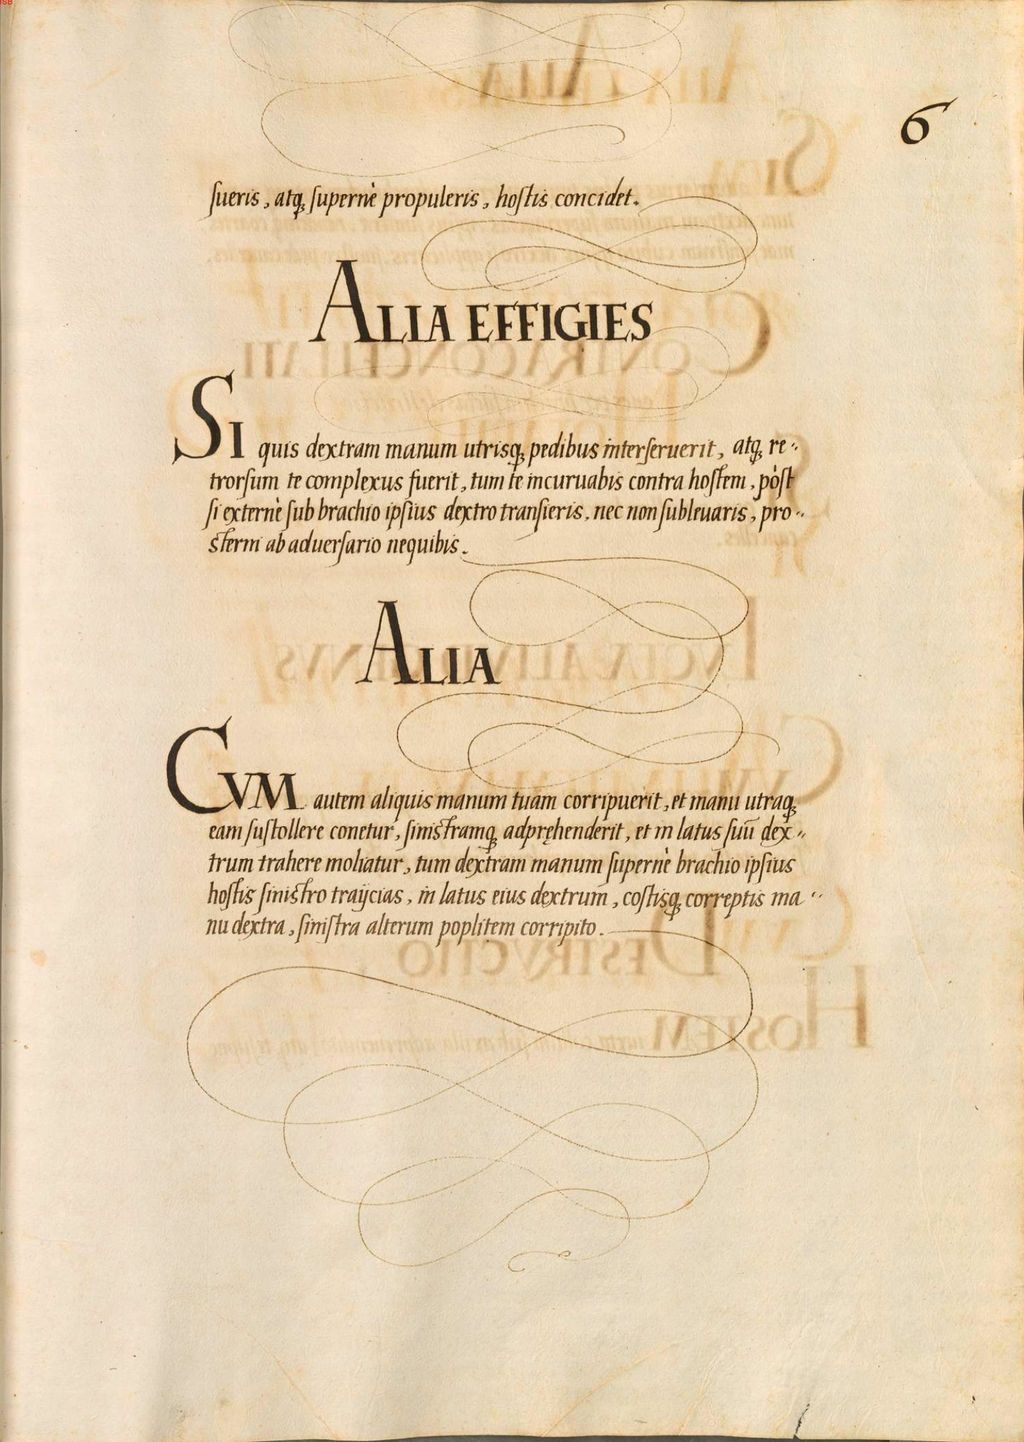 6
ſueris, atq; ſupernè propuleris, hoſtis concidet.
ALIA EFFIGIES
SI quis dextram manum utrisq; pedibus interſeruerit, atq; re-
trorſum te complexus fuerit, tum te incuruabis contra hoſtem, pòſt
ſi externè ſub brachio ipſius dextro tranſieris, nec non ſubleuaris, pro-
ſterni ab aduerſario nequibis.
ALIA
CVM autem aliquis manum tuam corripuerit, et manu utraq;
eam ſuſtollere conetur, ſiniſtramq; adpręhenderit, et in latus ſuū dex-
trum trahere moliatur, tum dextram manum ſupernè brachio ipſius
hoſtis ſiniſtro traijcias, in latus eius dextrum, coſtisq; correptis ma-
nu dextra, ſiniſtra alterum poplitem corripito.